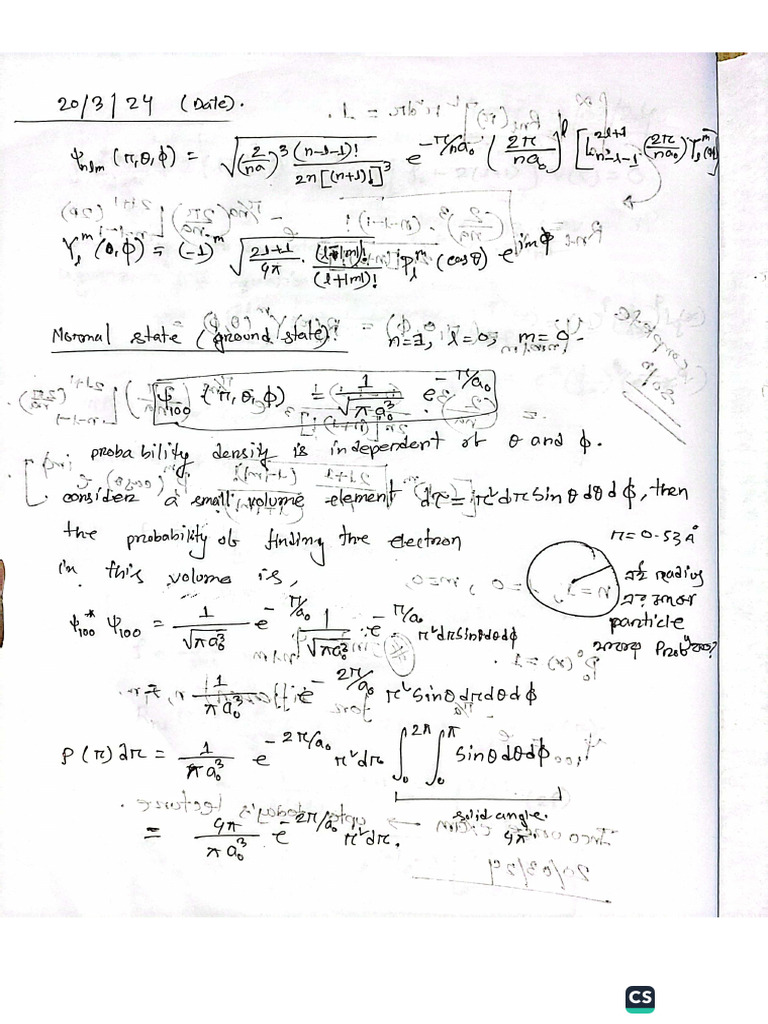 20/3/24 (Date).
ψnlm (r,θ,φ) = √((2/na)³ (n-l-1)!/2n[(n+l)!]³) e^(-r/na₀) (2r/na₀)^l [L_(n-l-1)^(2l+1) (2r/na₀) Y_l^m (θ
Y_l^m (θ,φ) = (-1)^m √((2l+1)/4π · (l-|m|)!/(l+|m|)!) P_l^m (cosθ) e^(imφ)
Normal state (ground state): n=1, l=0, m=0-
ψ₁₀₀ (r,θ,φ) = 1/√(πa₀³) e^(-r/a₀)
probability density is independent of θ and φ.
consider a small volume element dτ = r²dr sinθdθdφ, then
the probability of finding the electron
in this volume is,
r=0.53A°
এই radius
এর মধ্যে
particle
ψ₁₀₀* ψ₁₀₀ = 1/√(πa₀³) e^(-r/a₀) 1/√(πa₀³) · e^(-r/a₀) r²drsinθdθdφ
= 1/(πa₀³) e^(-2r/a₀) r²sinθdrdθdφ
P(r)dr = 1/(πa₀³) e^(-2r/a₀) r²dr ∫₀^(2π) ∫₀^π sinθdθdφ
solid angle.
4π
= 4π/(πa₀³) · e^(-2r/a₀) r²dr.
CS